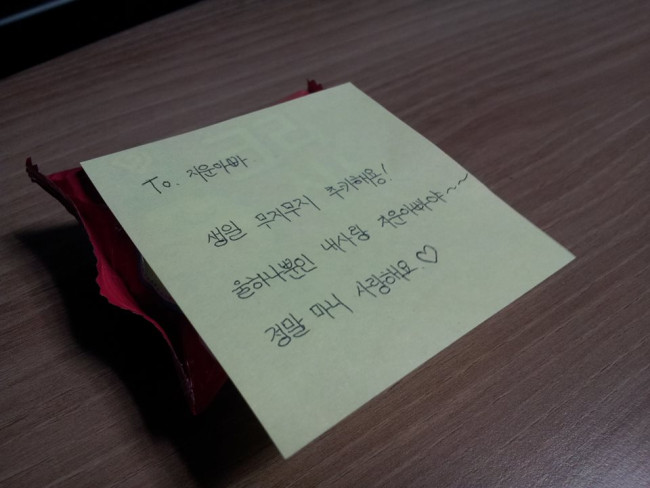 To. 지운아빠
생일 무지무지 추카해용!
울하나뿐인 내사랑 지운아빠야~~
정말 마니 사랑해요.♡